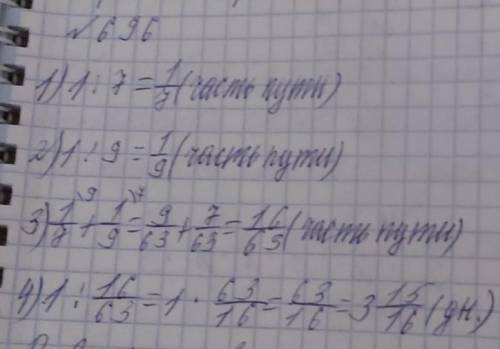 №696
1) 1 : 7 = 1/7 (часть пути)
2) 1 : 9 = 1/9 (часть пути)
3) 1/7 \9 + 1/9 \7 = 9/63 + 7/63 = 16/63 (часть пути)
4) 1 : 16/63 = 1 · 63/16 = 63/16 = 3 15/16 (дн.)